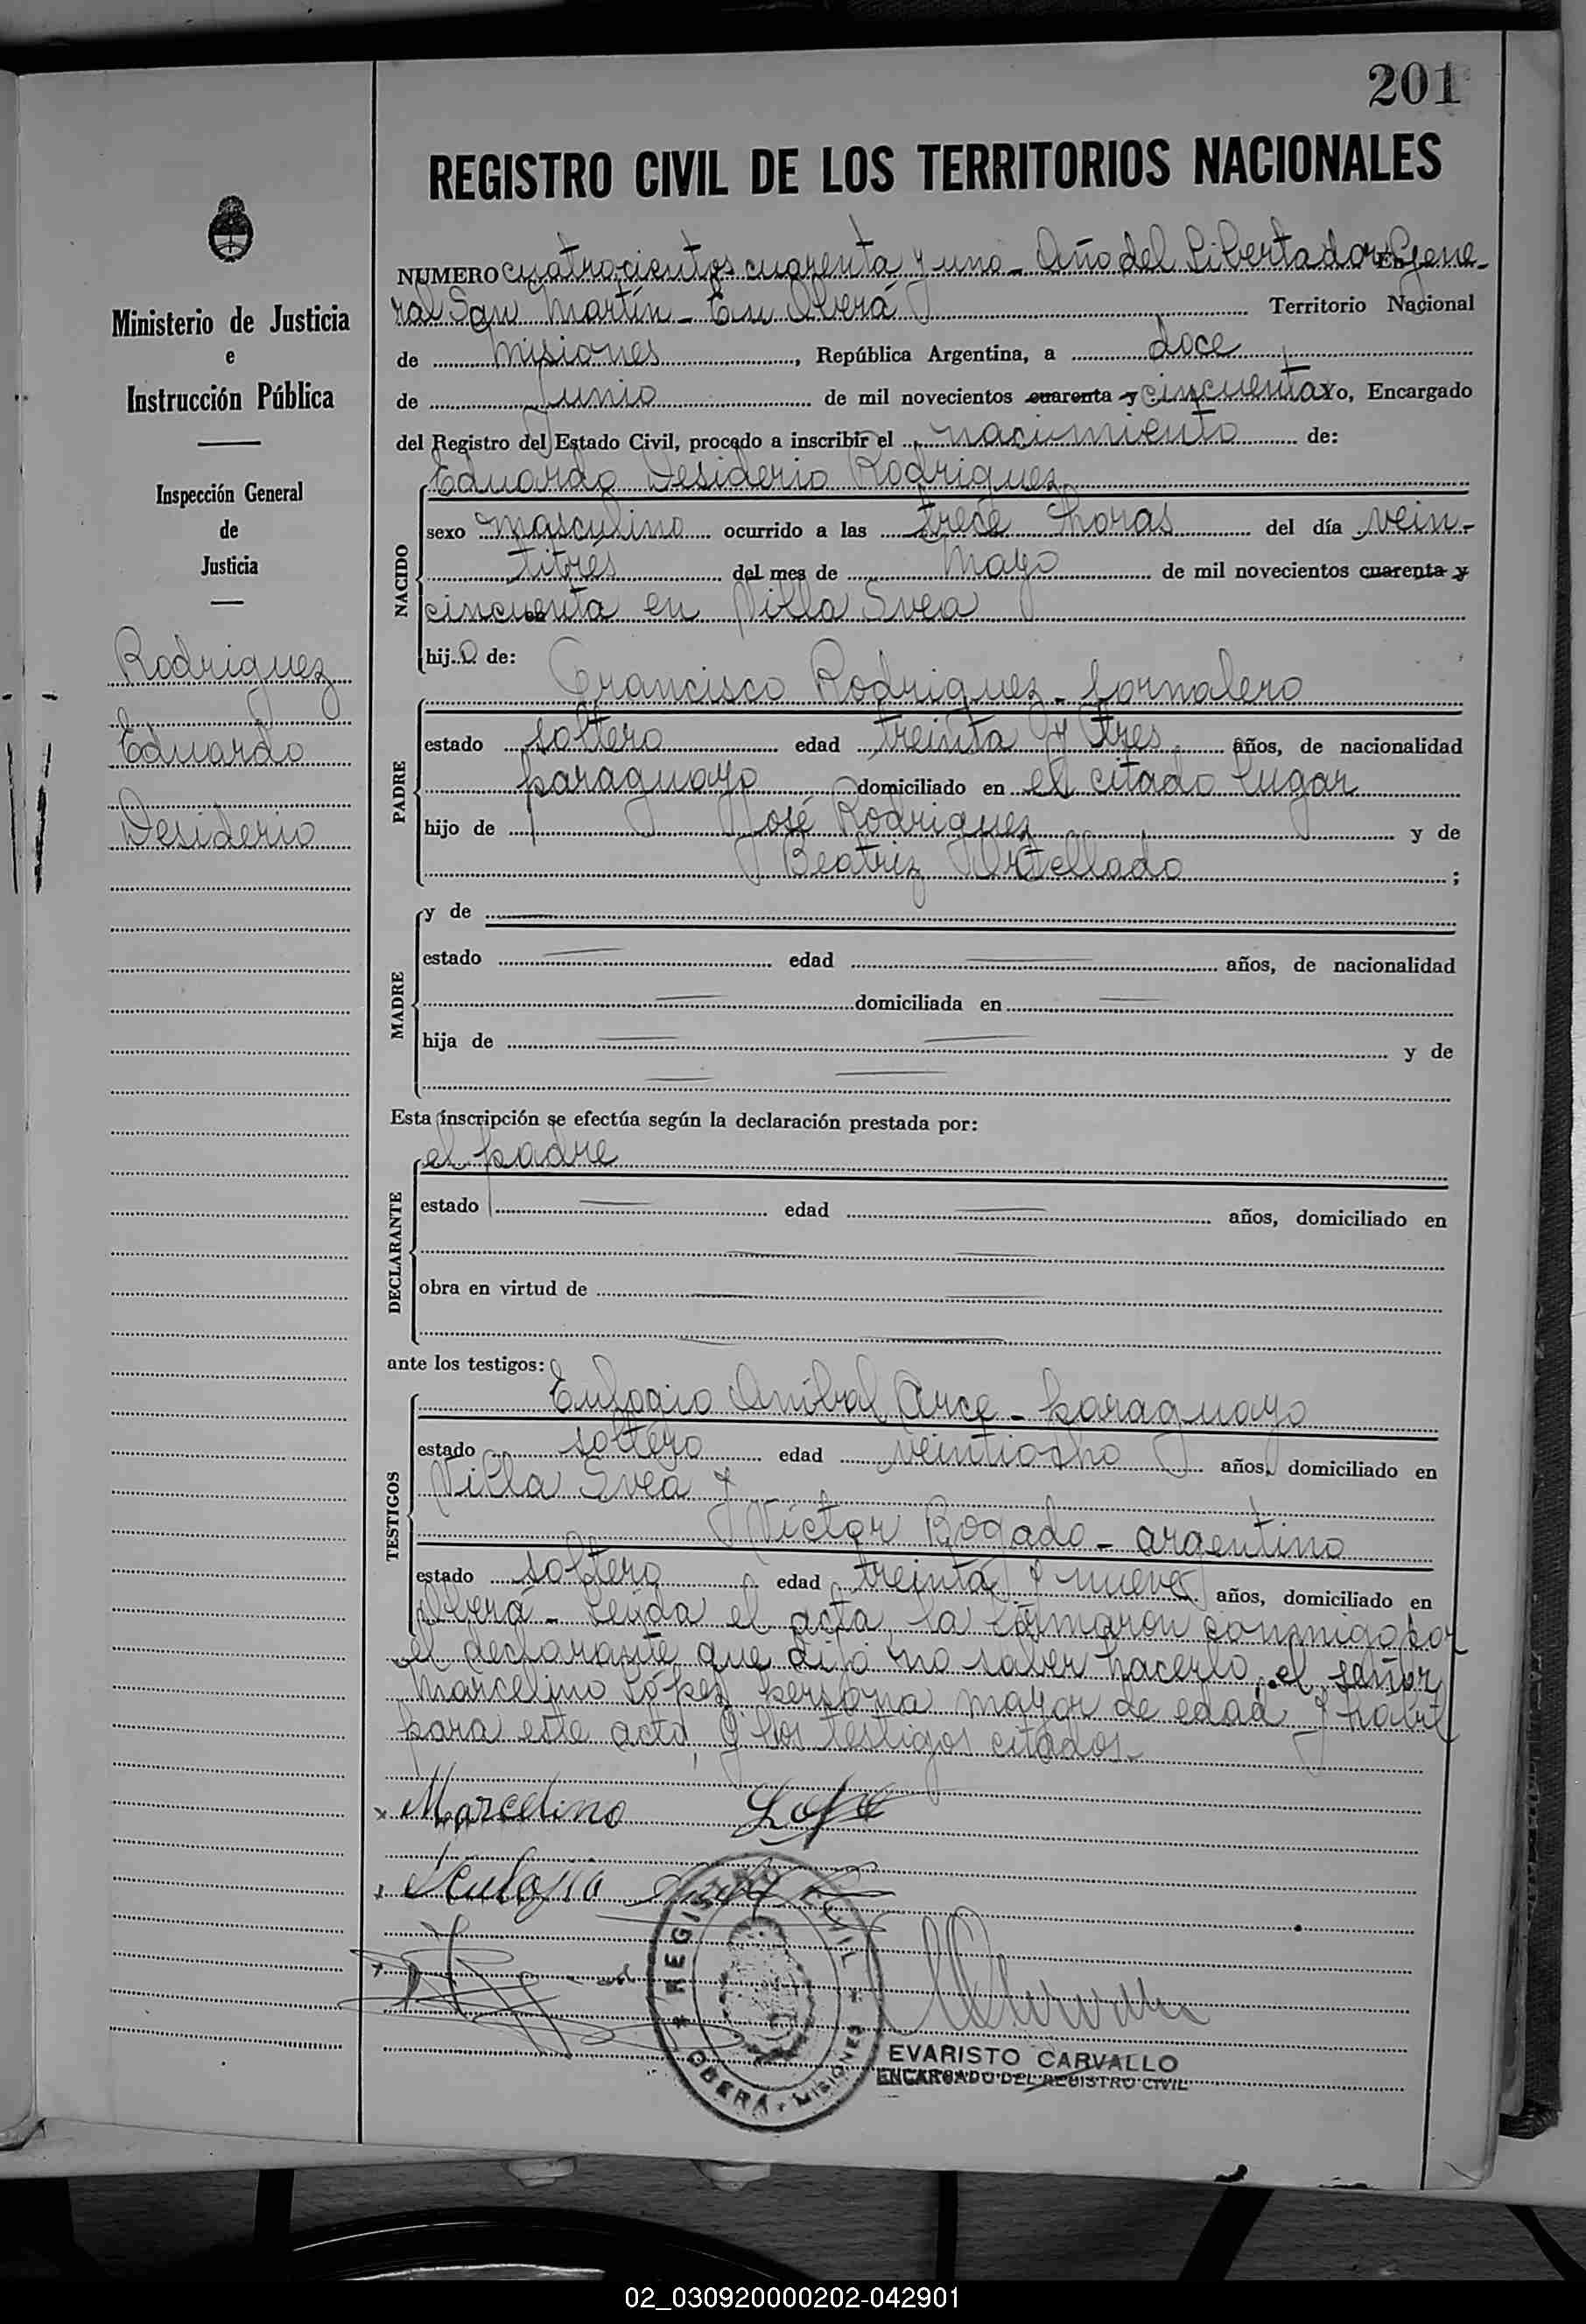 201
REGISTRO CIVIL DE LOS TERRITORIOS NACIONALES
Ministerio de Justicia
e
Instrucción Pública
Inspección General
de
Justicia
Rodriguez
Eduardo
Desiderio
NUMERO cuatrocientos cuarenta y uno - Año del Libertador En Gene-
ral San Martín - En Oberá Territorio Nacional
de Misiones, República Argentina, a doce
de Junio de mil novecientos cuarenta y cincuenta Yo, Encargado
del Registro del Estado Civil, procedo a inscribir el nacimiento de:
Eduardo Desiderio Rodriguez
NACIDO
sexo masculino ocurrido a las trece horas del día vein-
titrés del mes de Mayo de mil novecientos cuarenta y
cincuenta en Villa Svea
hijo de:
Francisco Rodriguez - Jornalero
PADRE
estado soltero edad treinta y tres años, de nacionalidad
paraguayo domiciliado en el citado lugar
hijo de José Rodriguez y de
Beatriz Ortellado ;
MADRE
y de
estado edad años, de nacionalidad
domiciliada en
hija de y de
Esta inscripción se efectúa según la declaración prestada por:
el padre
DECLARANTE
estado edad años, domiciliado en
obra en virtud de
ante los testigos:
Eulogio Anibal Arce - paraguayo
TESTIGOS
estado soltero edad veintiocho años, domiciliado en
Villa Svea y
Víctor Bogado - argentino
estado soltero edad treinta y nueve años, domiciliado en
Oberá - Leída el acta, la firmaron conmigo por
el declarante que dijo no saber hacerlo, el señor
Marcelino López persona mayor de edad y hábil
para este acto, y los testigos citados.
Marcelino Lope
Eulogio
REGISTRO CIVIL
OBERÁ * MISIONES
EVARISTO CARVALLO
ENCARGADO DEL REGISTRO CIVIL
02_030920000202-042901